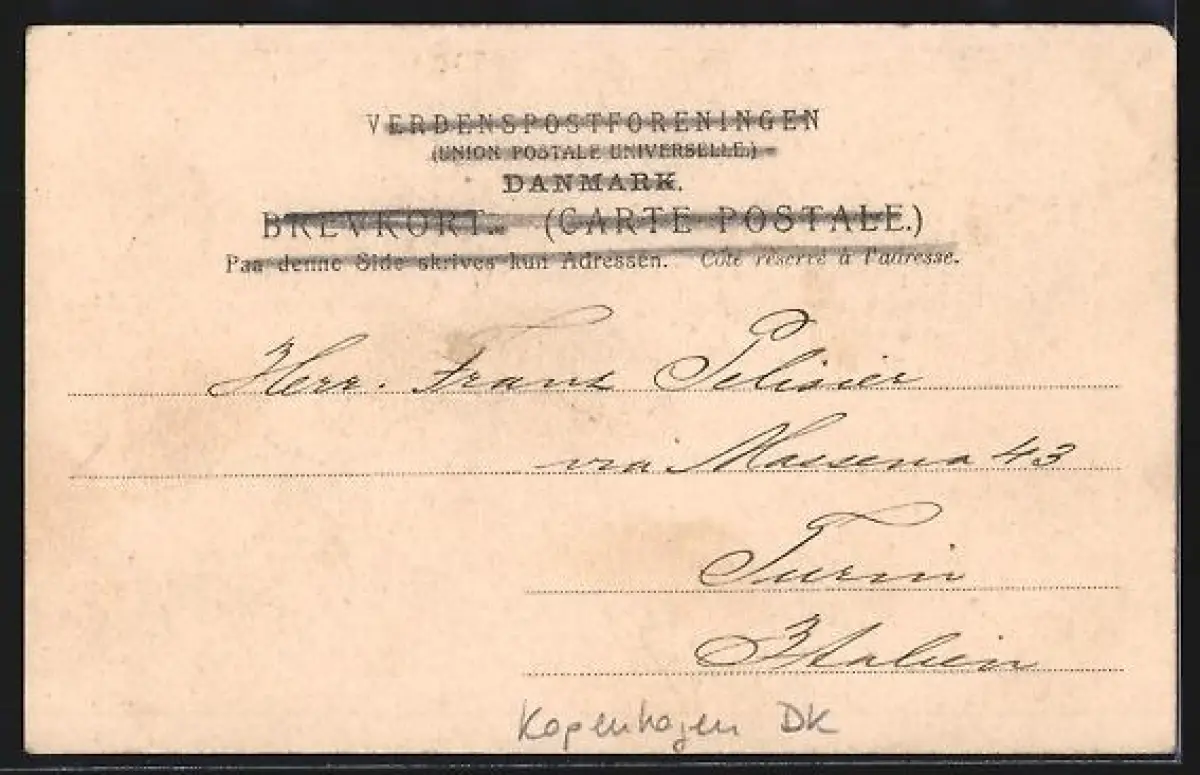 VERDENSPOSTFORENINGEN
(UNION POSTALE UNIVERSELLE.)
DANMARK.
BREVKORT. (CARTE POSTALE.)
Paa denne Side skrives kun Adressen. Côté réservé à l'adresse.
Herr. Franz Pelisier
via Massena 43
Turin
Italien
Kopenhagen DK